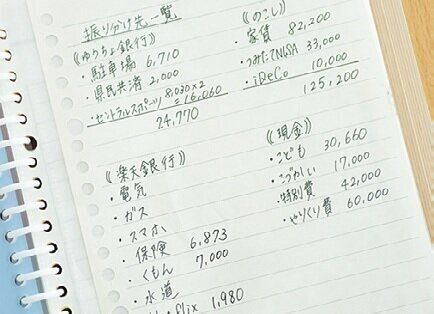 振り分け先一覧
《ゆうちょ銀行》
・駐車場 6,710
・県民共済 2,000
・セントラルスポーツ 8,030×2
=16,060
24,770
《のこし》
・家賃 82,200
・つみたてNISA 33,000
・iDeCo 10,000
125,200
《楽天銀行》
・電気
・ガス
・スマホ
・保険 6,873
・くもん 7,000
・水道
flix 1,980
《現金》
・こども 30,660
・こづかい 17,000
・特別費 42,000
・やりくり費 60,000